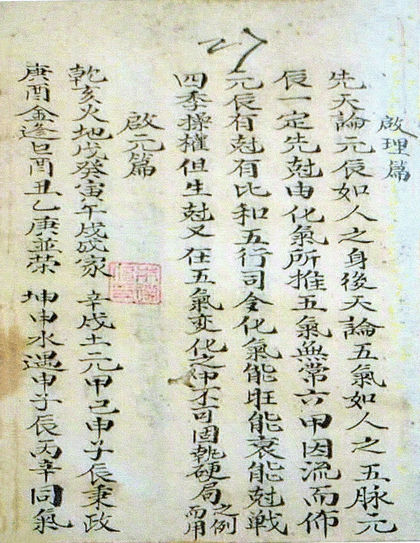 啟理篇
先天論元辰如人之身後天論五氣如人之五脉元
辰一定先尅由化氣所推五氣無常六甲因流而佈
元辰有尅有比和五行司令化氣能旺能衰能尅戦
四季操權但生尅又在五氣变化之中不可固執硬局之例而用
啟元篇
乾亥火地戊癸寅午戌家 辛戌土元甲己申子辰秉政
庚酉金逢巳酉丑乙庚並荣 坤申水遇申子辰丙辛同氣